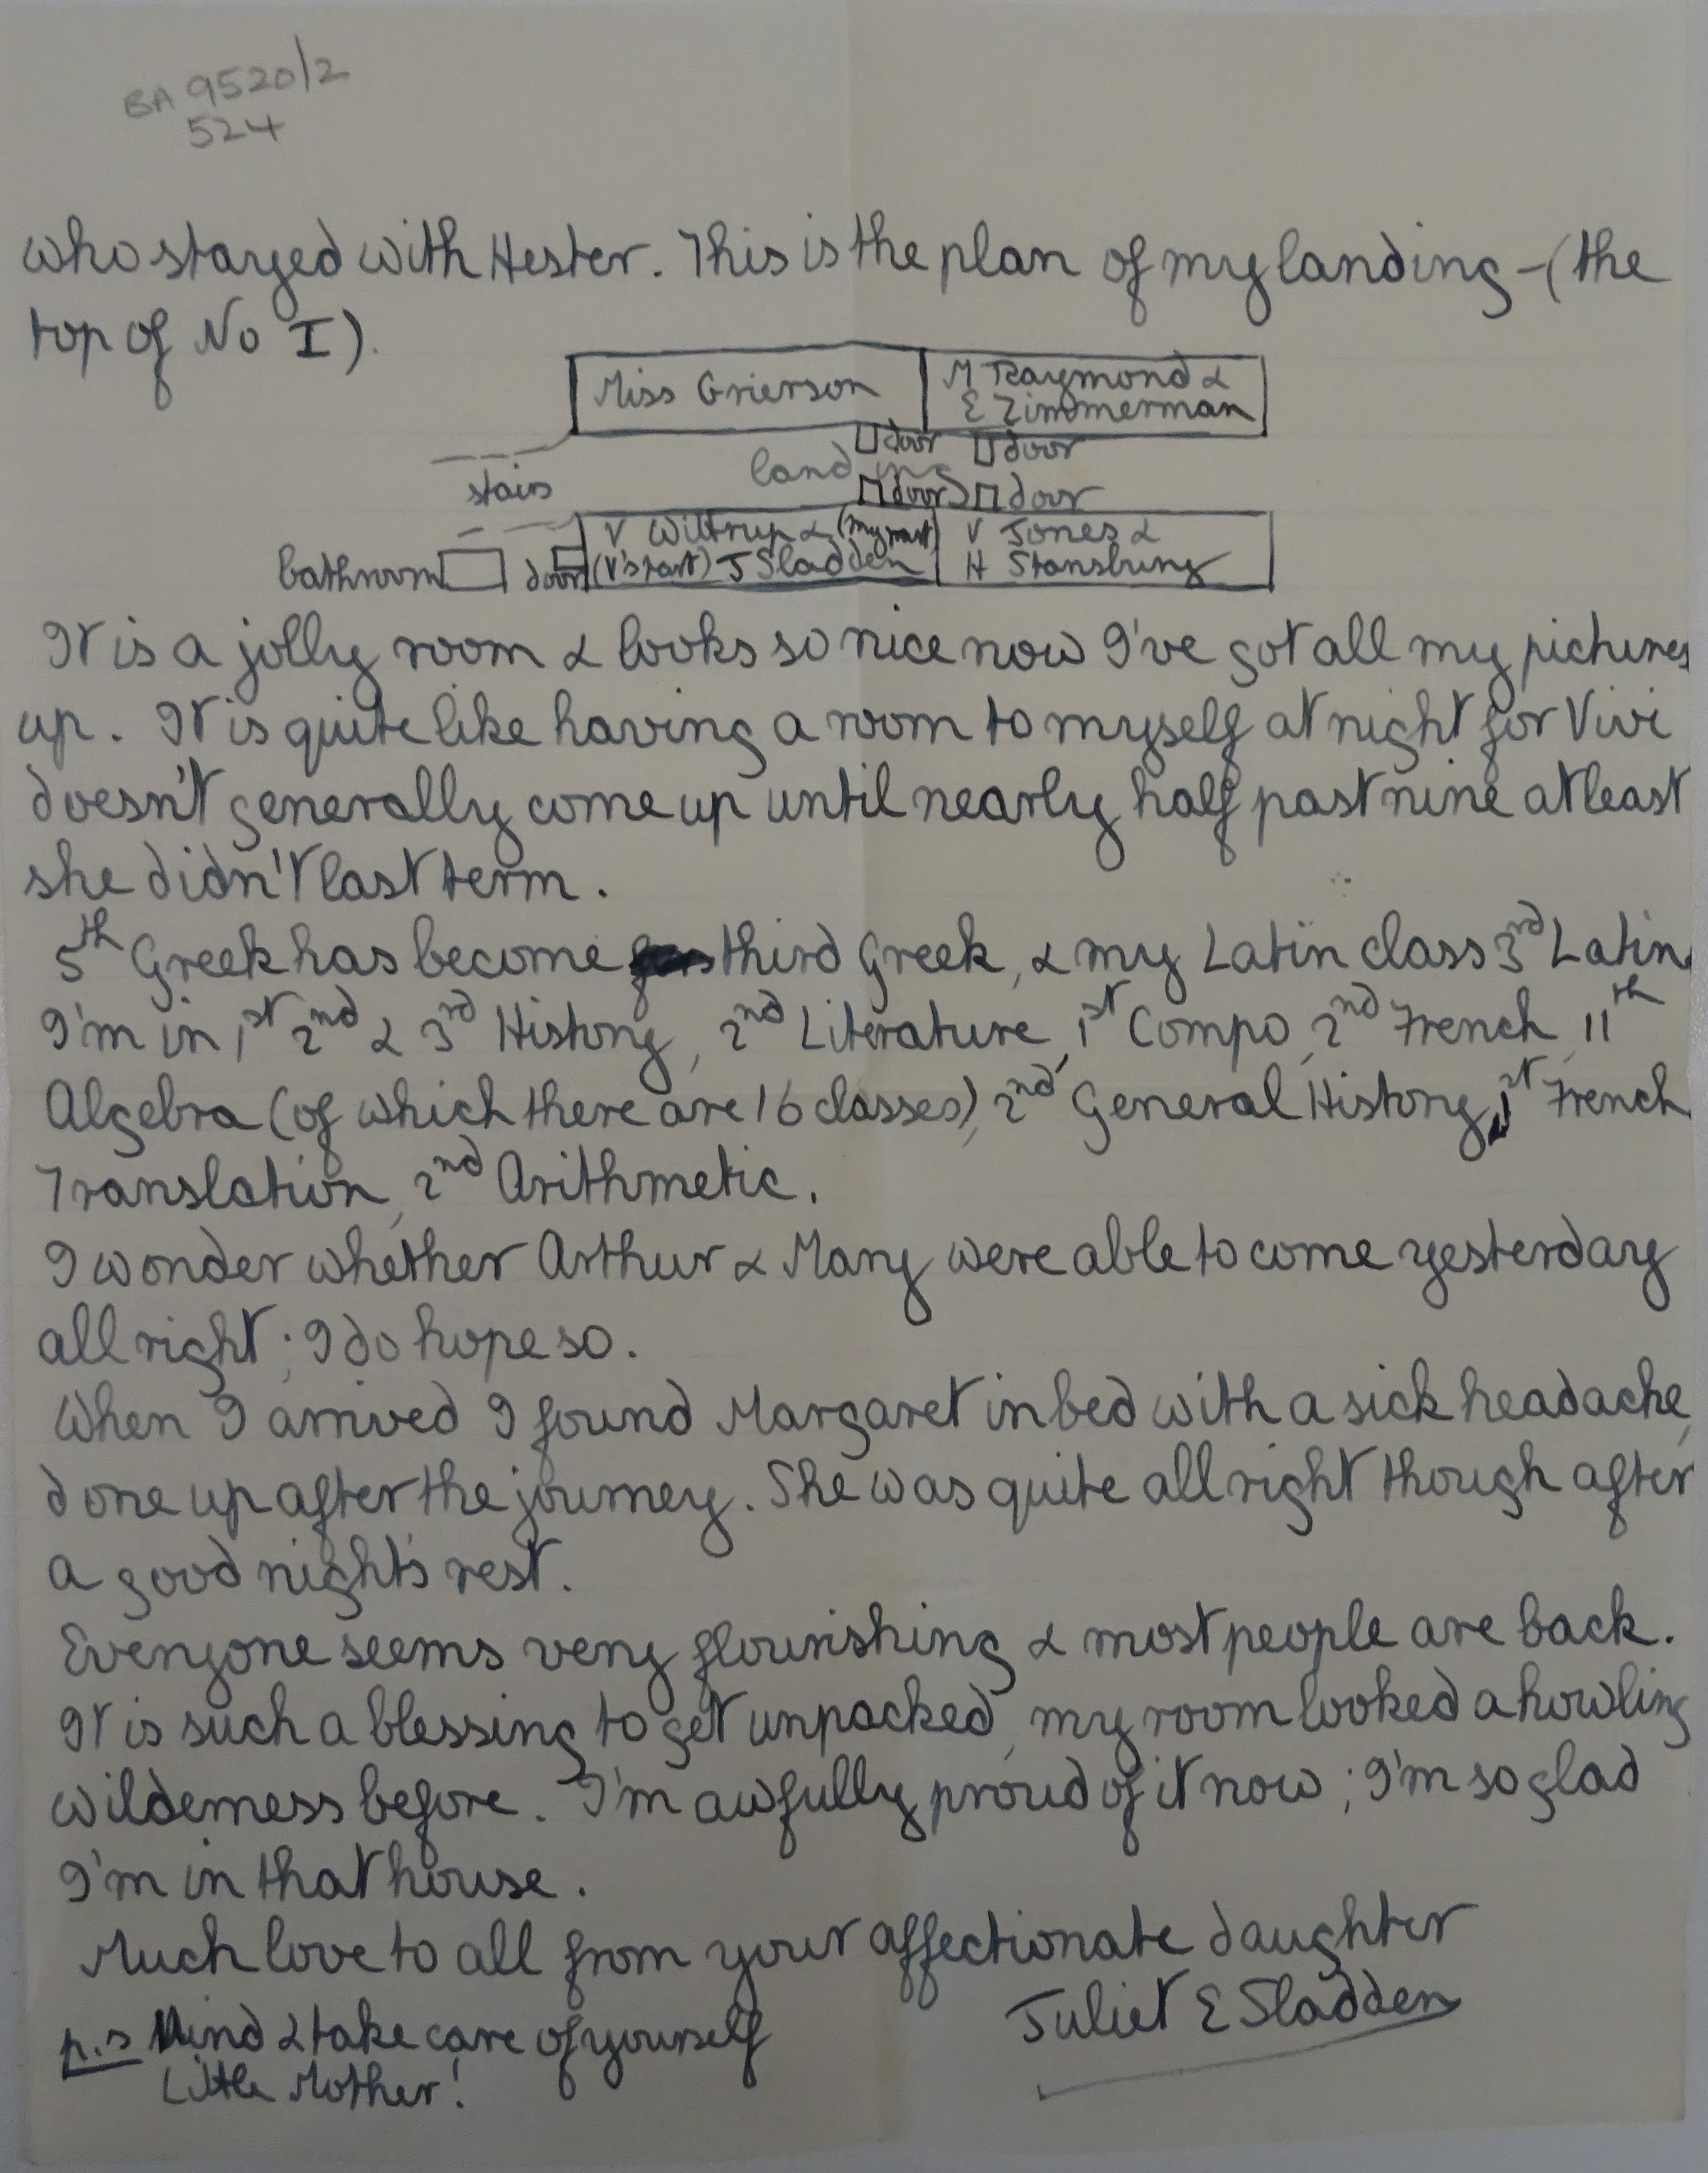 BA 9520/2
524
who stayed with Hester. This is the plan of my landing - (the
top of No I).
Miss Grierson
M Raymond &
E Zimmerman
door door
landing
stairs
door door
V Wiltrup & (my part)
(V's part) J Sladden
V Jones &
H Stansbury
bathroom
door
It is a jolly room & looks so nice now I've got all my pictures
up. It is quite like having a room to myself at night for Vivi
doesn't generally come up until nearly half past nine at least
she didn't last term.
5th Greek has become third Greek, & my Latin class 3rd Latin.
I'm in 1st 2nd & 3rd History, 2nd Literature, 1st Compo, 2nd French, 11th
Algebra (of which there are 16 classes), 2nd General History, 1st French
Translation, 2nd Arithmetic.
I wonder whether Arthur & Mary were able to come yesterday
all right; I do hope so.
When I arrived I found Margaret in bed with a sick headache,
done up after the journey. She was quite all right though after
a good night's rest.
Everyone seems very flourishing & most people are back.
It is such a blessing to get unpacked, my room looked a howling
wilderness before. I'm awfully proud of it now; I'm so glad
I'm in that house.
Much love to all from your affectionate daughter
Juliet E Sladden
p.s Mind & take care of yourself
Little Mother!